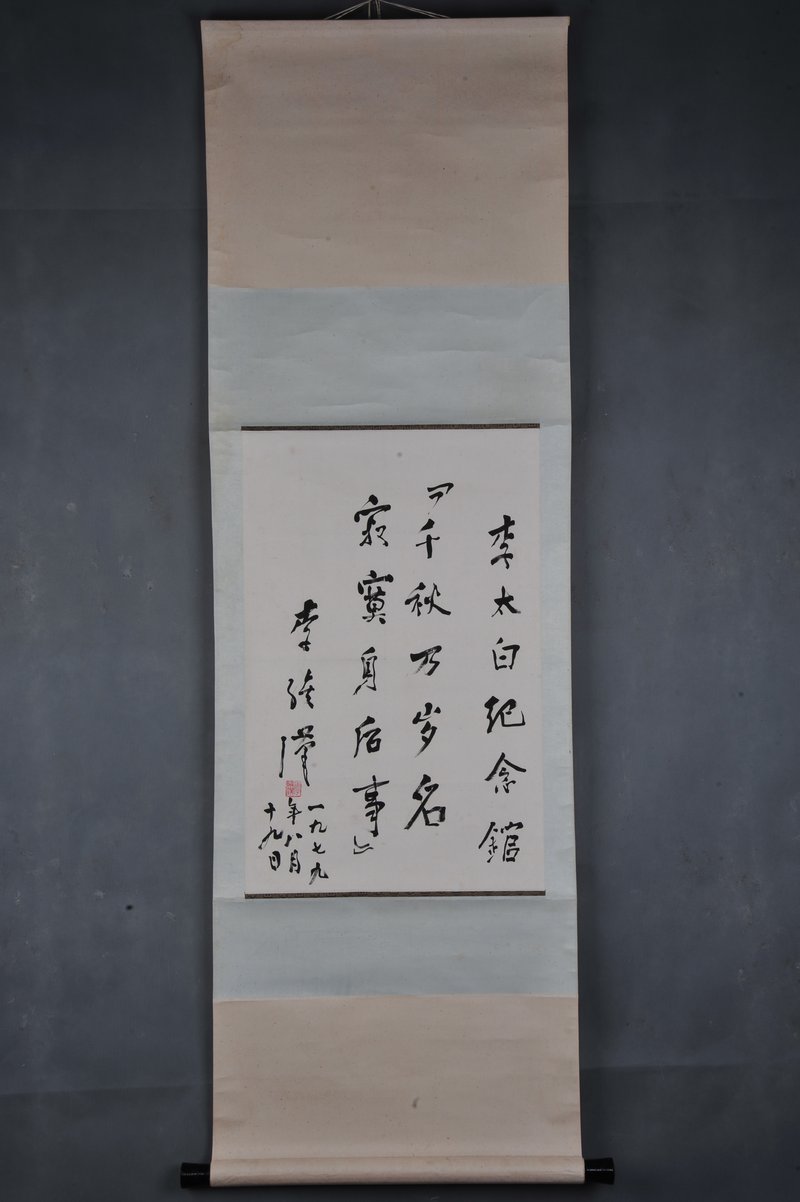 李太白纪念館
「千秋万岁名
寂寞身后事」
李维漢
一九七九
年八月
十九日